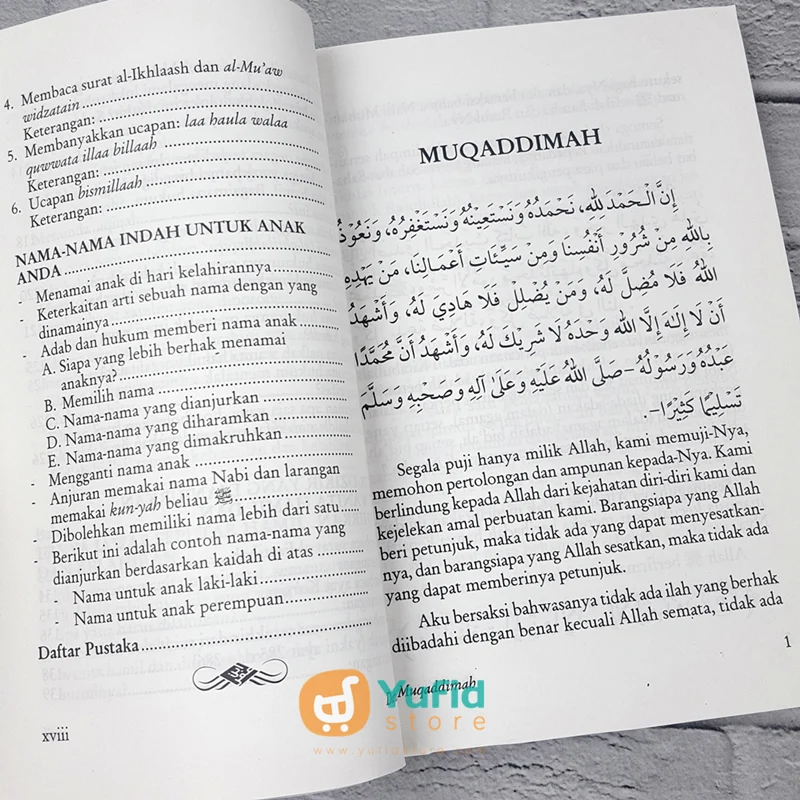 4. Membaca surat al-Ikhlaash dan al-Mu'aw
widzatain
Keterangan:
5. Membanyakkan ucapan: laa haula walaa
quwwata illaa billaah
Keterangan:
6. Ucapan bismillaah
Keterangan:
NAMA-NAMA INDAH UNTUK ANAK
ANDA
- Menamai anak di hari kelahirannya
- Keterkaitan arti sebuah nama dengan yang
dinamainya
- Adab dan hukum memberi nama anak
A. Siapa yang lebih berhak menamai
anaknya?
B. Memilih nama
C. Nama-nama yang dianjurkan
D. Nama-nama yang diharamkan
E. Nama-nama yang dimakruhkan
- Mengganti nama anak
- Anjuran memakai nama Nabi dan larangan
memakai kun-yah beliau ﷺ
- Dibolehkan memiliki nama lebih dari satu
- Berikut ini adalah contoh nama-nama yang
dianjurkan berdasarkan kaidah di atas
- Nama untuk anak laki-laki
- Nama untuk anak perempuan
Daftar Pustaka
xviii
MUQADDIMAH
إِنَّ الْحَمْدَ لِلَّهِ، نَحْمَدُهُ وَنَسْتَعِيْنُهُ وَنَسْتَغْفِرُهُ، وَنَعُوْذُ
بِاللهِ مِنْ شُرُوْرِ أَنْفُسِنَا وَمِنْ سَيِّئَاتِ أَعْمَالِنَا، مَنْ يَهْدِهِ
اللهُ فَلَا مُضِلَّ لَهُ، وَمَنْ يُضْلِلْ فَلَا هَادِيَ لَهُ، وَأَشْهَدُ
أَنْ لَا إِلَهَ إِلَّا اللهُ وَحْدَهُ لَا شَرِيْكَ لَهُ، وَأَشْهَدُ أَنَّ مُحَمَّدًا
عَبْدُهُ وَرَسُوْلُهُ -صَلَّى اللهُ عَلَيْهِ وَعَلَى آلِهِ وَصَحْبِهِ وَسَلَّمَ
تَسْلِيْمًا كَثِيْرًا-.
Segala puji hanya milik Allah, kami memuji-Nya,
memohon pertolongan dan ampunan kepada-Nya. Kami
berlindung kepada Allah dari kejahatan diri-diri kami dan
kejelekan amal perbuatan kami. Barangsiapa yang Allah
beri petunjuk, maka tidak ada yang dapat menyesatkan-
nya, dan barangsiapa yang Allah sesatkan, maka tidak ada
yang dapat memberinya petunjuk.
Aku bersaksi bahwasanya tidak ada ilah yang berhak
diibadahi dengan benar kecuali Allah semata, tidak ada
1
Muqaddimah
Yufid
store